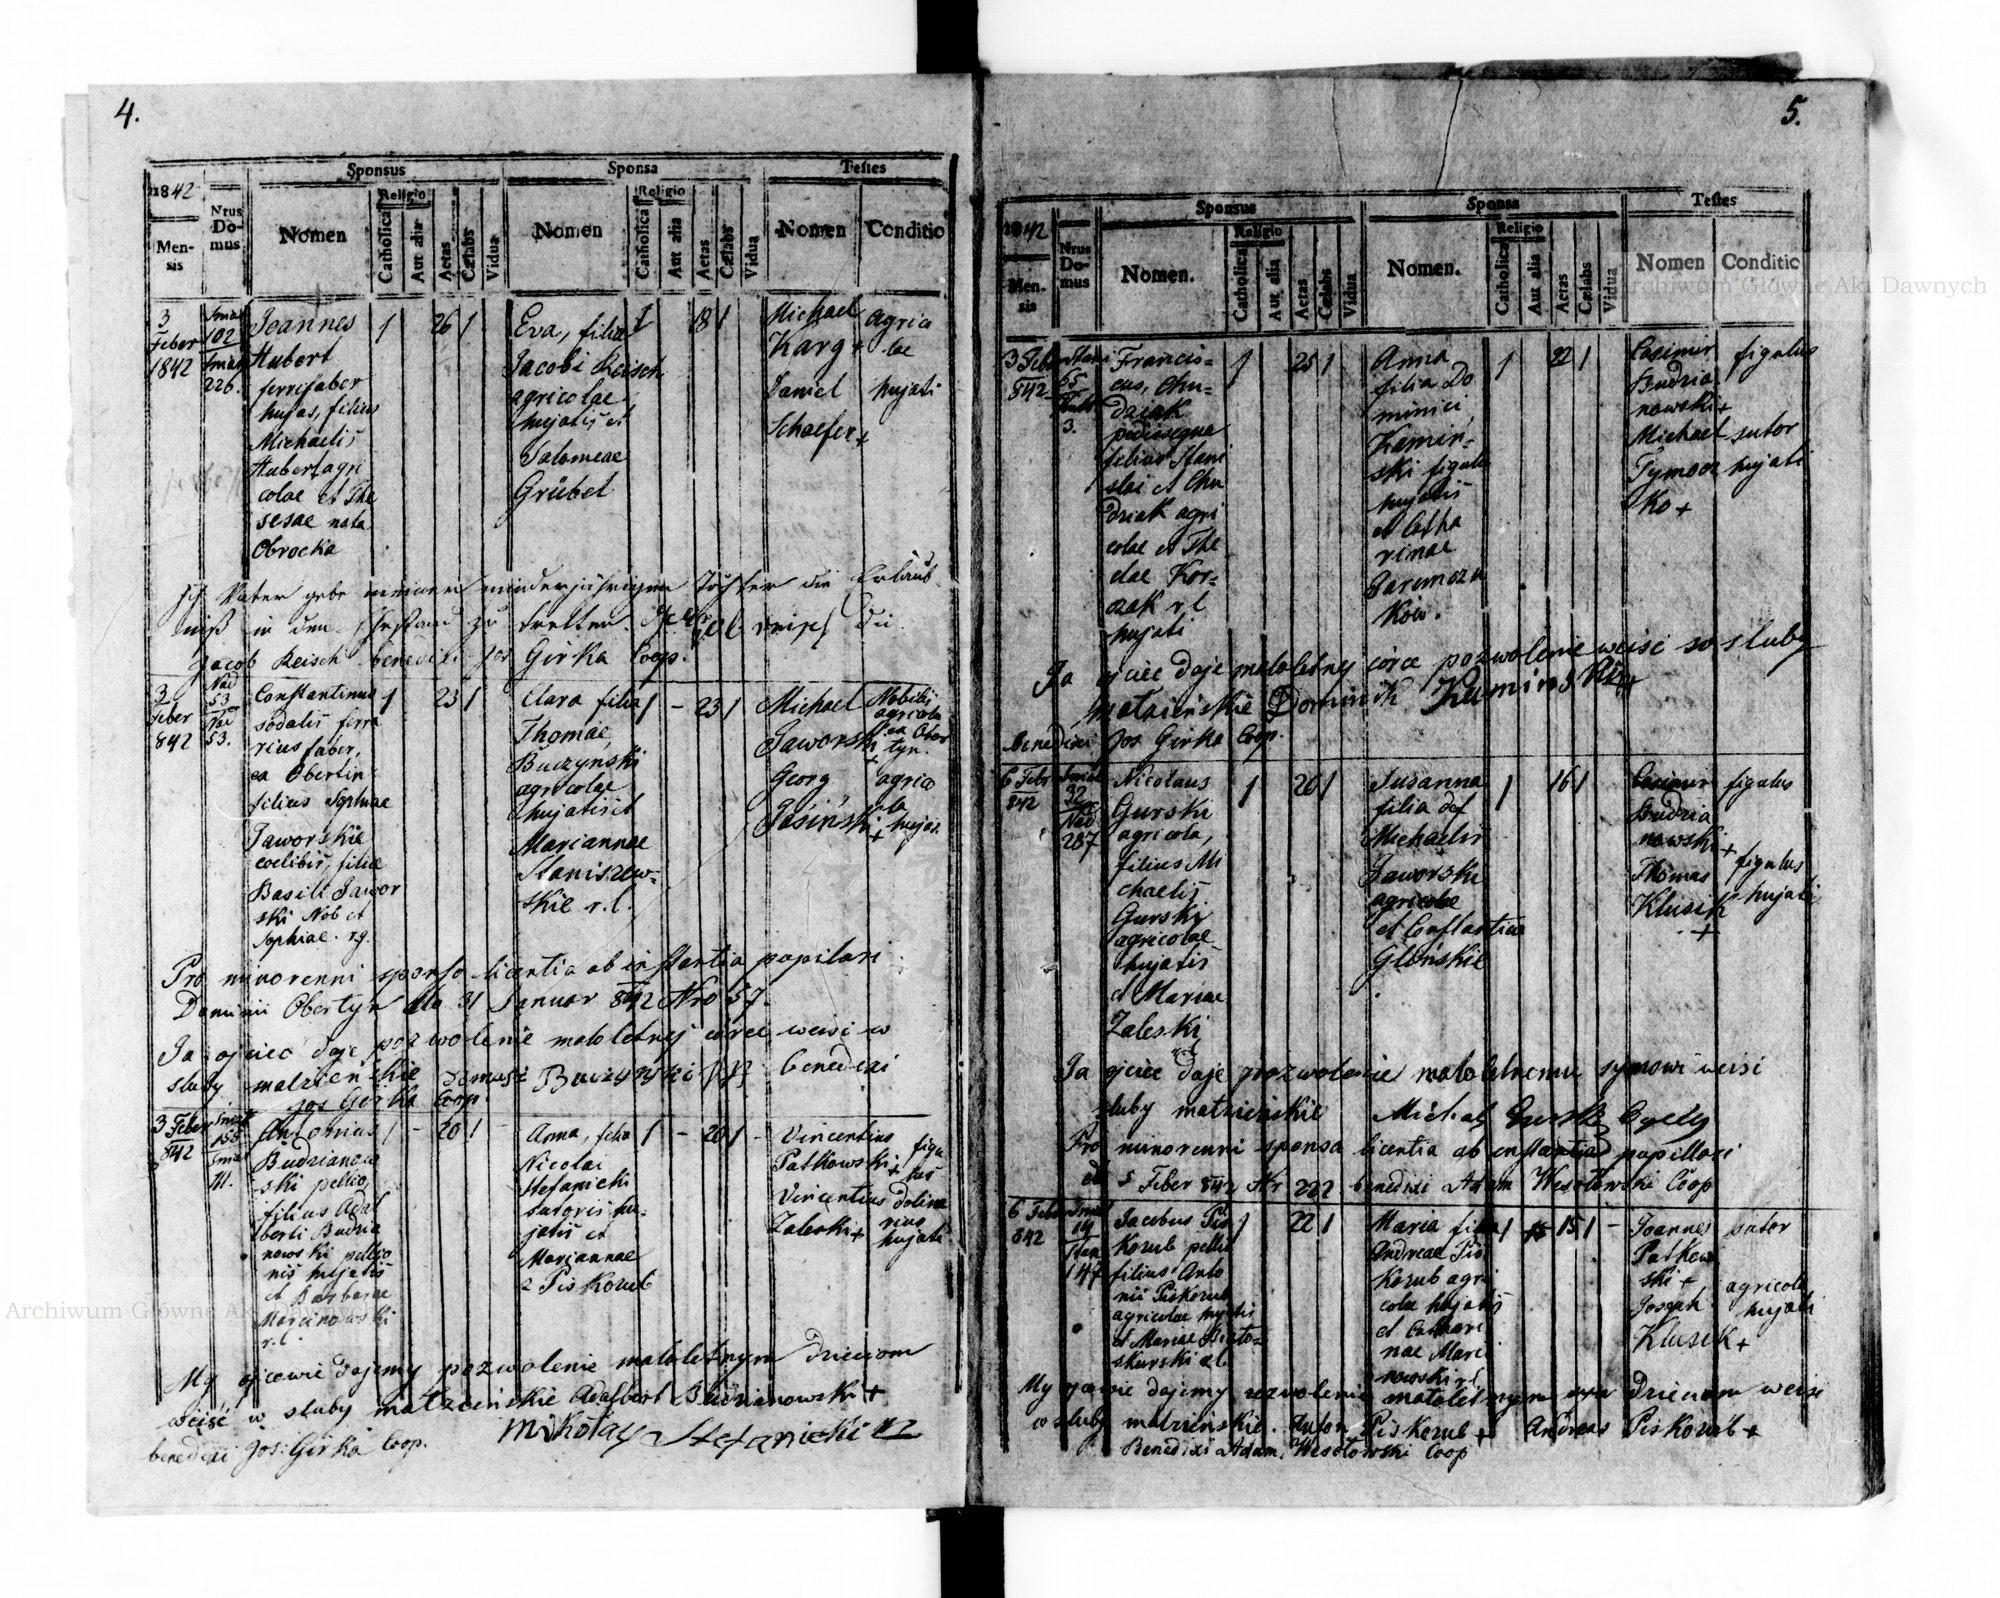 4.
Sponsus Sponsa Testes
1842
Mensis
Nrus Domus
Nomen
Religio
Catholica
Aut alia
Aetas
Caelebs
Vidua
Nomen
Religio
Catholica
Aut alia
Aetas
Caelebs
Vidua
Nomen Conditio
3
Feber
1842
102
226.
Joannes
Hubert
ferrifaber
hujas, filius
Michaelis
Hubert agri
colae et The
resae nata
Obrocka
1 26 1
Eva, filia
Jacobi Reisch
agricolae
hujatis et
Salomeae
Grübel
1 18 1
Michael
Karg +
Daniel
Schaefer +
agrico
lae
hujati
Ich Vater gebe meiner minderjährigen Tochter die Erlaub
niß in den Ehestand zu tretten.
Jacob Reisch benedixi Jos Girka Coop.
3
Feber
842
53
53.
Constantinus
sodalis ferra
rius faber,
ex Obertin
filius Sophiae
Jaworskie
coelibis, filiae
Basili Jawor
ski Nob et
Sophiae. r.g.
1 23 1
Clara filia
Thomae
Buczyński
agricolae
hujatis et
Mariannae
Staniszew-
skie r.l.
1 - 23 1
Michael
Jaworski
+
Georg
Jasiński
+
Nobilis
agricola
ex Ober
tyn.
agrico
la
hujas.
Pro minorenni sponso licentia ab instantia pupilari
Dominii Obertyn dto 31 Januar 842 Nro 57.
Ja ojciec daje pozwolenie maloletnej córce weisi w
sluby malzienskie Tomasz Buczyński benedixi
Jos Girka Coop.
3 Feber
842
155
111.
Antonius
Budzianow
ski pellio,
filius Adal
berti Budzia
nowski pellio
nis hujatis
et Barbarae
Marcinowski
r.l.
1 - 20 1
Anna, filia
Nicolai
Stefanicki
sutoris hu-
jatis et
Mariannae
z Piskozub
1 - 20 1 -
Vincentius
Patkowski +
Vincentius
Zaleski +
figu
lus
dolia
rius
hujati
My ojcowie dajemy pozwolenie maloletnym dzieciom
weiść w sluby malzienskie Adalbert Budzianowski +
benedixi Jos: Girka Coop. Mikołay Stefanicki
5.
Sponsus Sponsa Testes
1842
Mensis
Nrus Domus
Nomen.
Religio
Catholica
Aut alia
Aetas
Caelebs
Vidua
Nomen.
Religio
Catholica
Aut alia
Aetas
Caelebs
Vidua
Nomen Conditio
3 Feber
842
65
3.
Francis=
cus, Chu=
dziak
pedissequa
filius Stani
slai et Chu
dziak agri
colae et The
clae Kor=
czak r.l
hujati
1 25 1
Anna
filia Do
minici,
Kamin-
ski figuli
hujatis
et Catha
rinae
Jaremczu
ków.
1 22 1
Casimir
Budzia
nowski +
Michael
Tymocz
ko +
figulus
sutor
hujati
Ja ojciec daje maloletny córce pozwolenie weisc w sluby
malzienskie Dominik Kaminski
benedixi Jos Girka Coop.
6 Febr
842
32
287
Nicolaus
Gurski
agricola,
filius Mi
chaelis
Gurski
agricolae
hujatis
et Mariae
Zaleski
1 20 1
Susanna
filia def
Michaelis
Jaworski
agricolae
et Constantiae
Glinskie
1 16 1
Casimir
Budzia
nowski +
Thomas
Klusik
+
figulus
figulus
hujati
Ja ojciec daje pozwolenie maloletnemu synowi weisi
sluby malzienskie Michał Gurski
Pro minorenni sponsa licentia ab instantia pupillari
5 Feber 842 Nr 222 benedixi Adam Wesołowski Coop
6 Feber
842
14
147
Jacobus Pis
kozub pellio
filius Anto
nii Piskozub
agricolae hujatis
et Mariae
r.l
1 22 1
Maria filia
Andreae Pis
kozub agri
colae hujatis
et Cathari
nae Marci
nowski r.l
1 15 1 -
Joannes
Patkow
ski +
Joseph
Klusik +
sutor
agricola
hujati
My ojcowie dajemy zezwolenie maloletnym dzieciom weisc
w sluby malzienskie. Anton Piskozub + Andreas Piskozub +
Benedixi Adam Wesołowski Coop
Archiwum Główne Akt Dawnych
Archiwum Główne Akt Dawnych